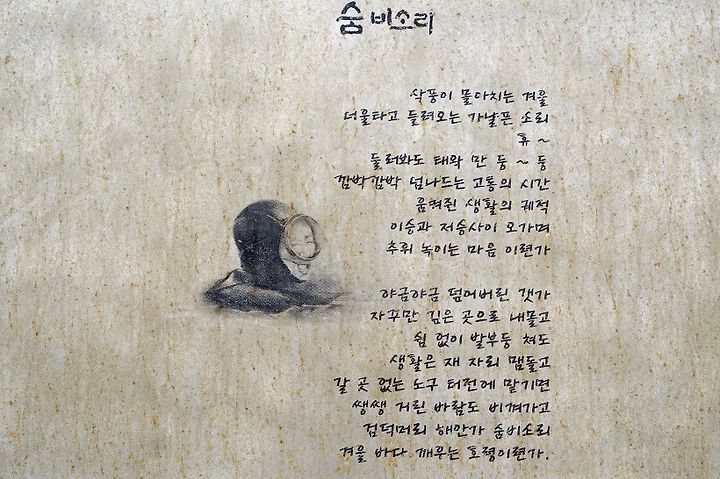 숨비소리
삭풍이 몰아치는 겨울
너울타고 들려오는 가냘픈 소리
휴 ~
둘러봐도 태왁 만 둥 ~ 둥
깜박깜박 넘나드는 고통의 시간
움켜쥔 생활의 궤적
이승과 저승사이 오가며
추위 녹이는 마음 이련가
야금야금 덤어버린 갯가
자꾸만 깊은 곳으로 내몰고
쉼 없이 발부둥 쳐도
생활은 재 자리 맴돌고
갈 곳 없는 노구 터전에 맡기면
쌩쌩 거린 바람도 비껴가고
검덕머리 해안가 숨비소리
겨울 바다 깨우는 호령이련가.